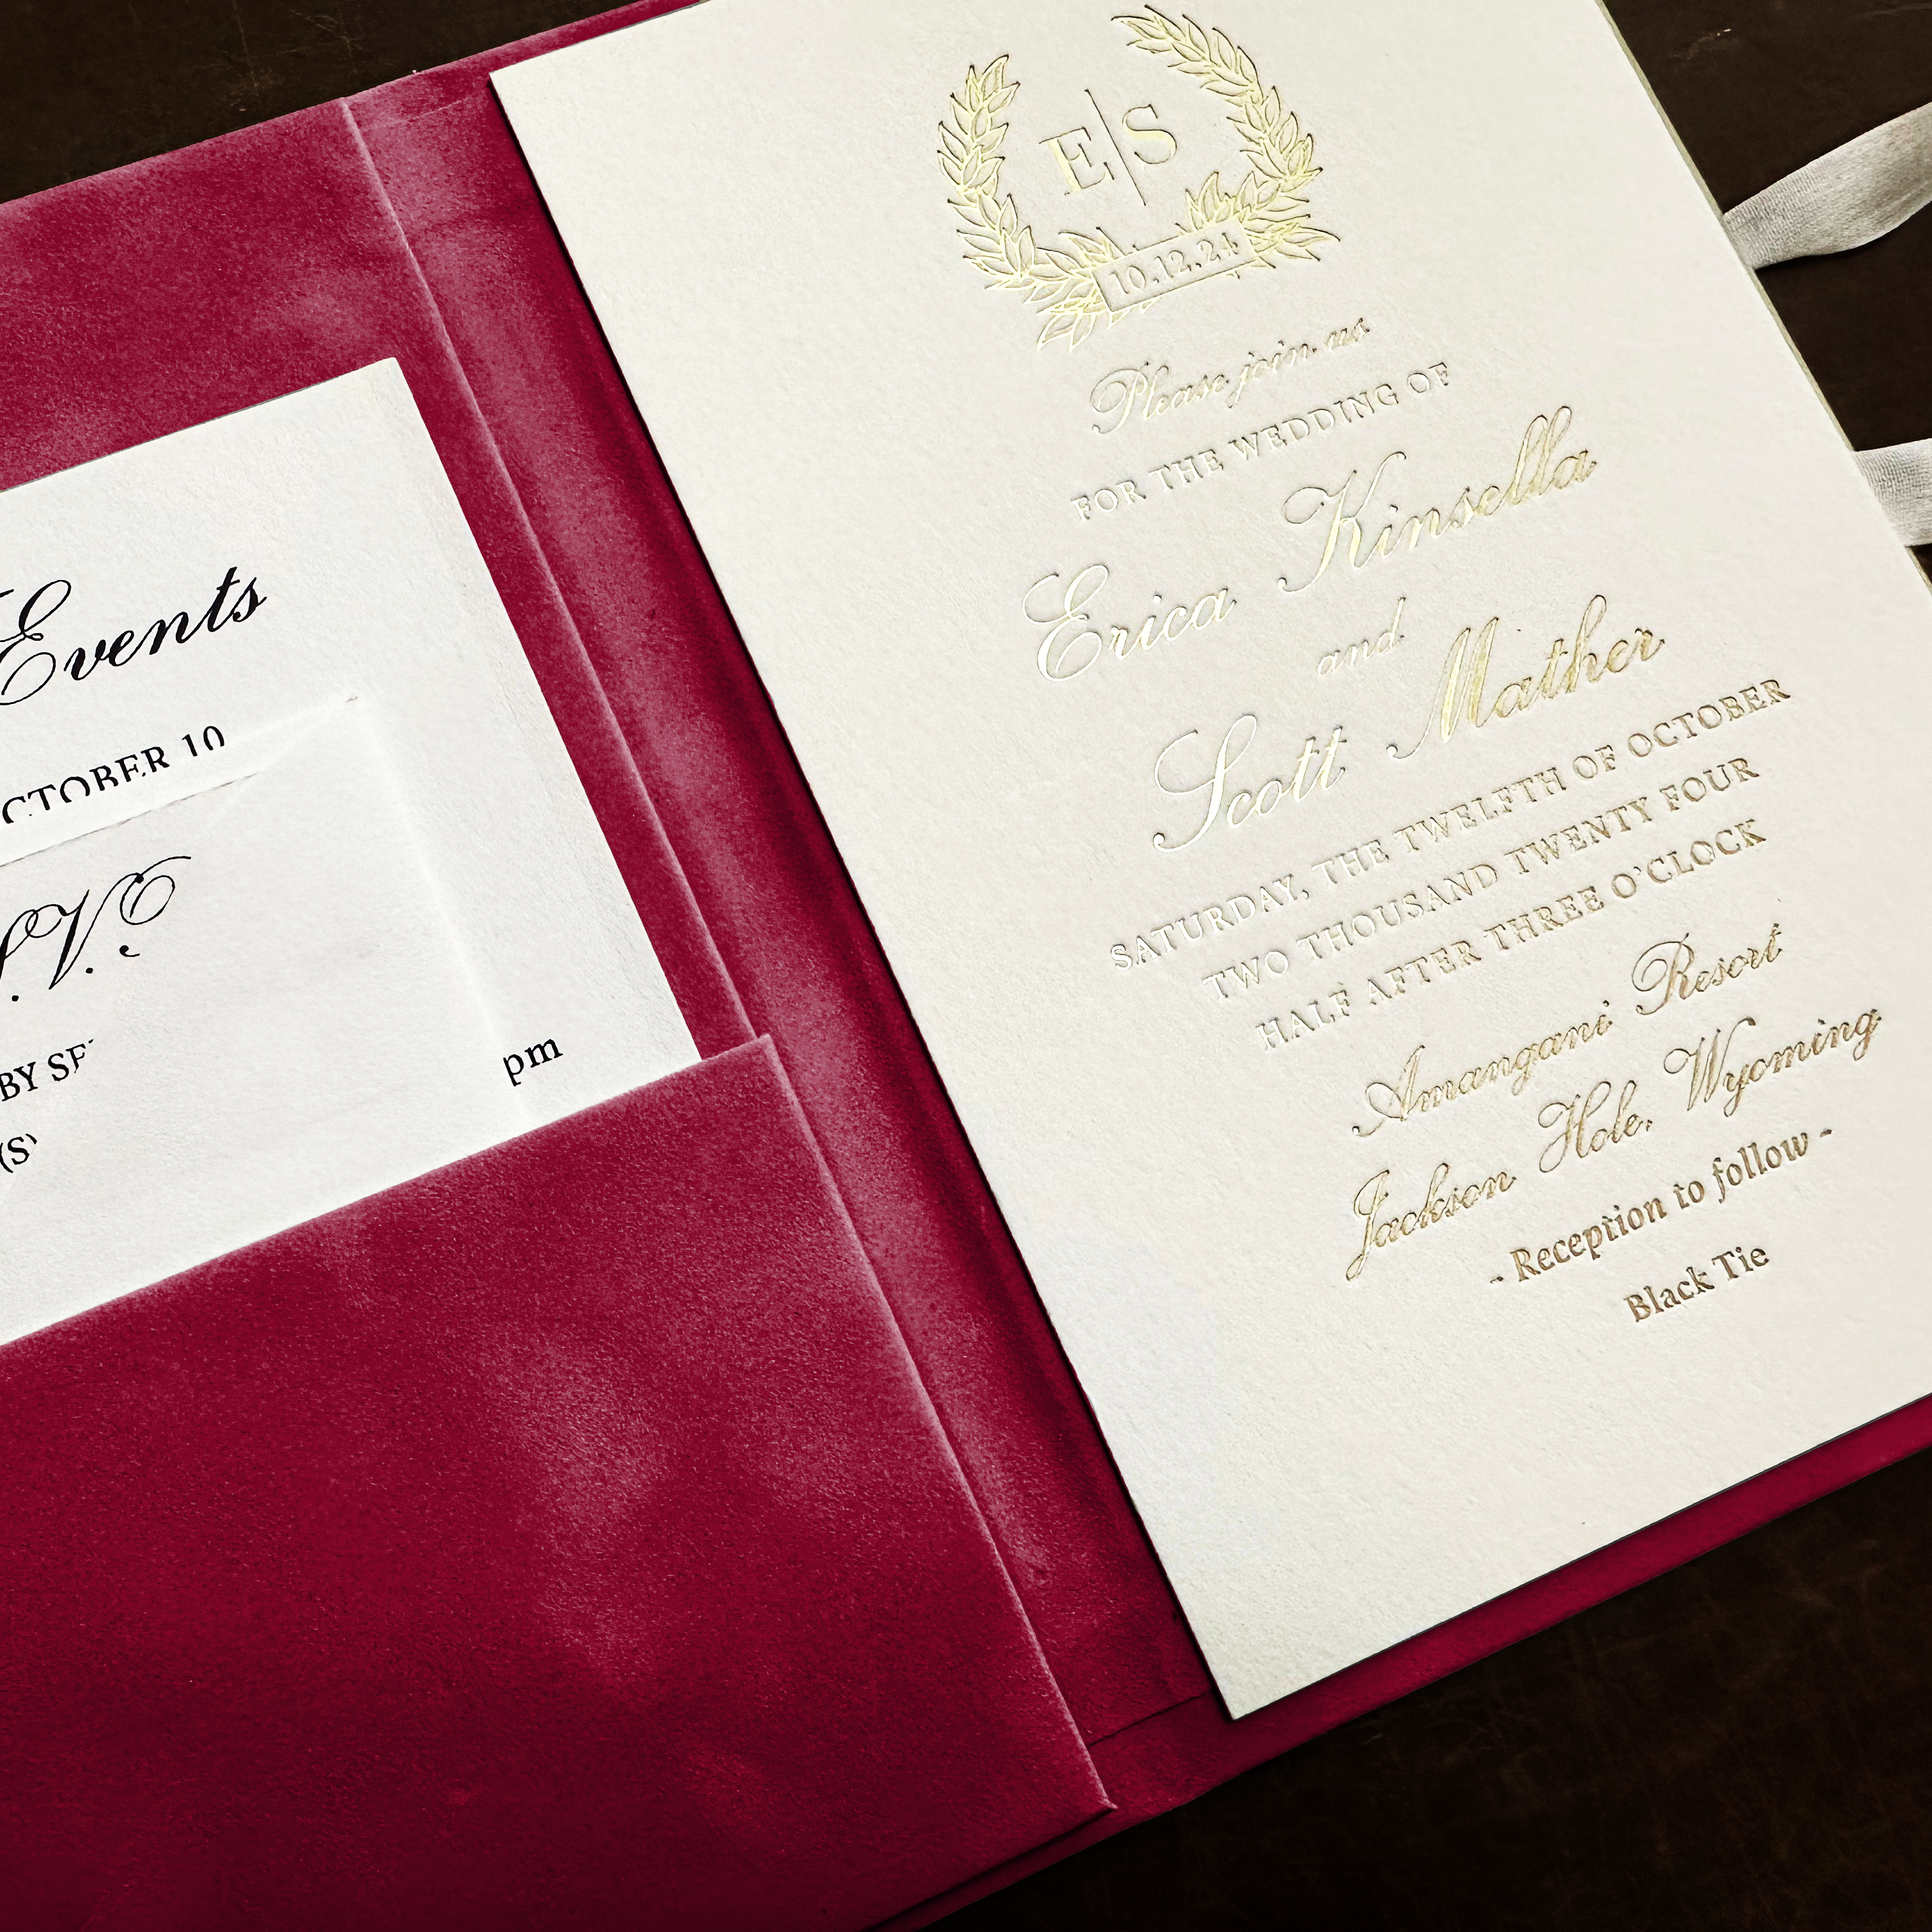 Events
CTOBER 10
.V.
BY SE
pm
E|S
10.12.24
Please join us
FOR THE WEDDING OF
Erica Kinsella
and
Scott Mather
SATURDAY, THE TWELFTH OF OCTOBER
TWO THOUSAND TWENTY FOUR
HALF AFTER THREE O'CLOCK
Amangani Resort
Jackson Hole, Wyoming
- Reception to follow -
Black Tie